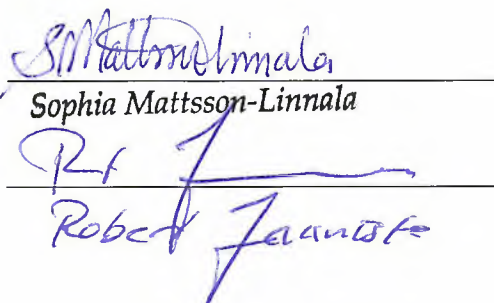 S Mattsson-Linnala
Sophia Mattsson-Linnala
Robert Jaaniste